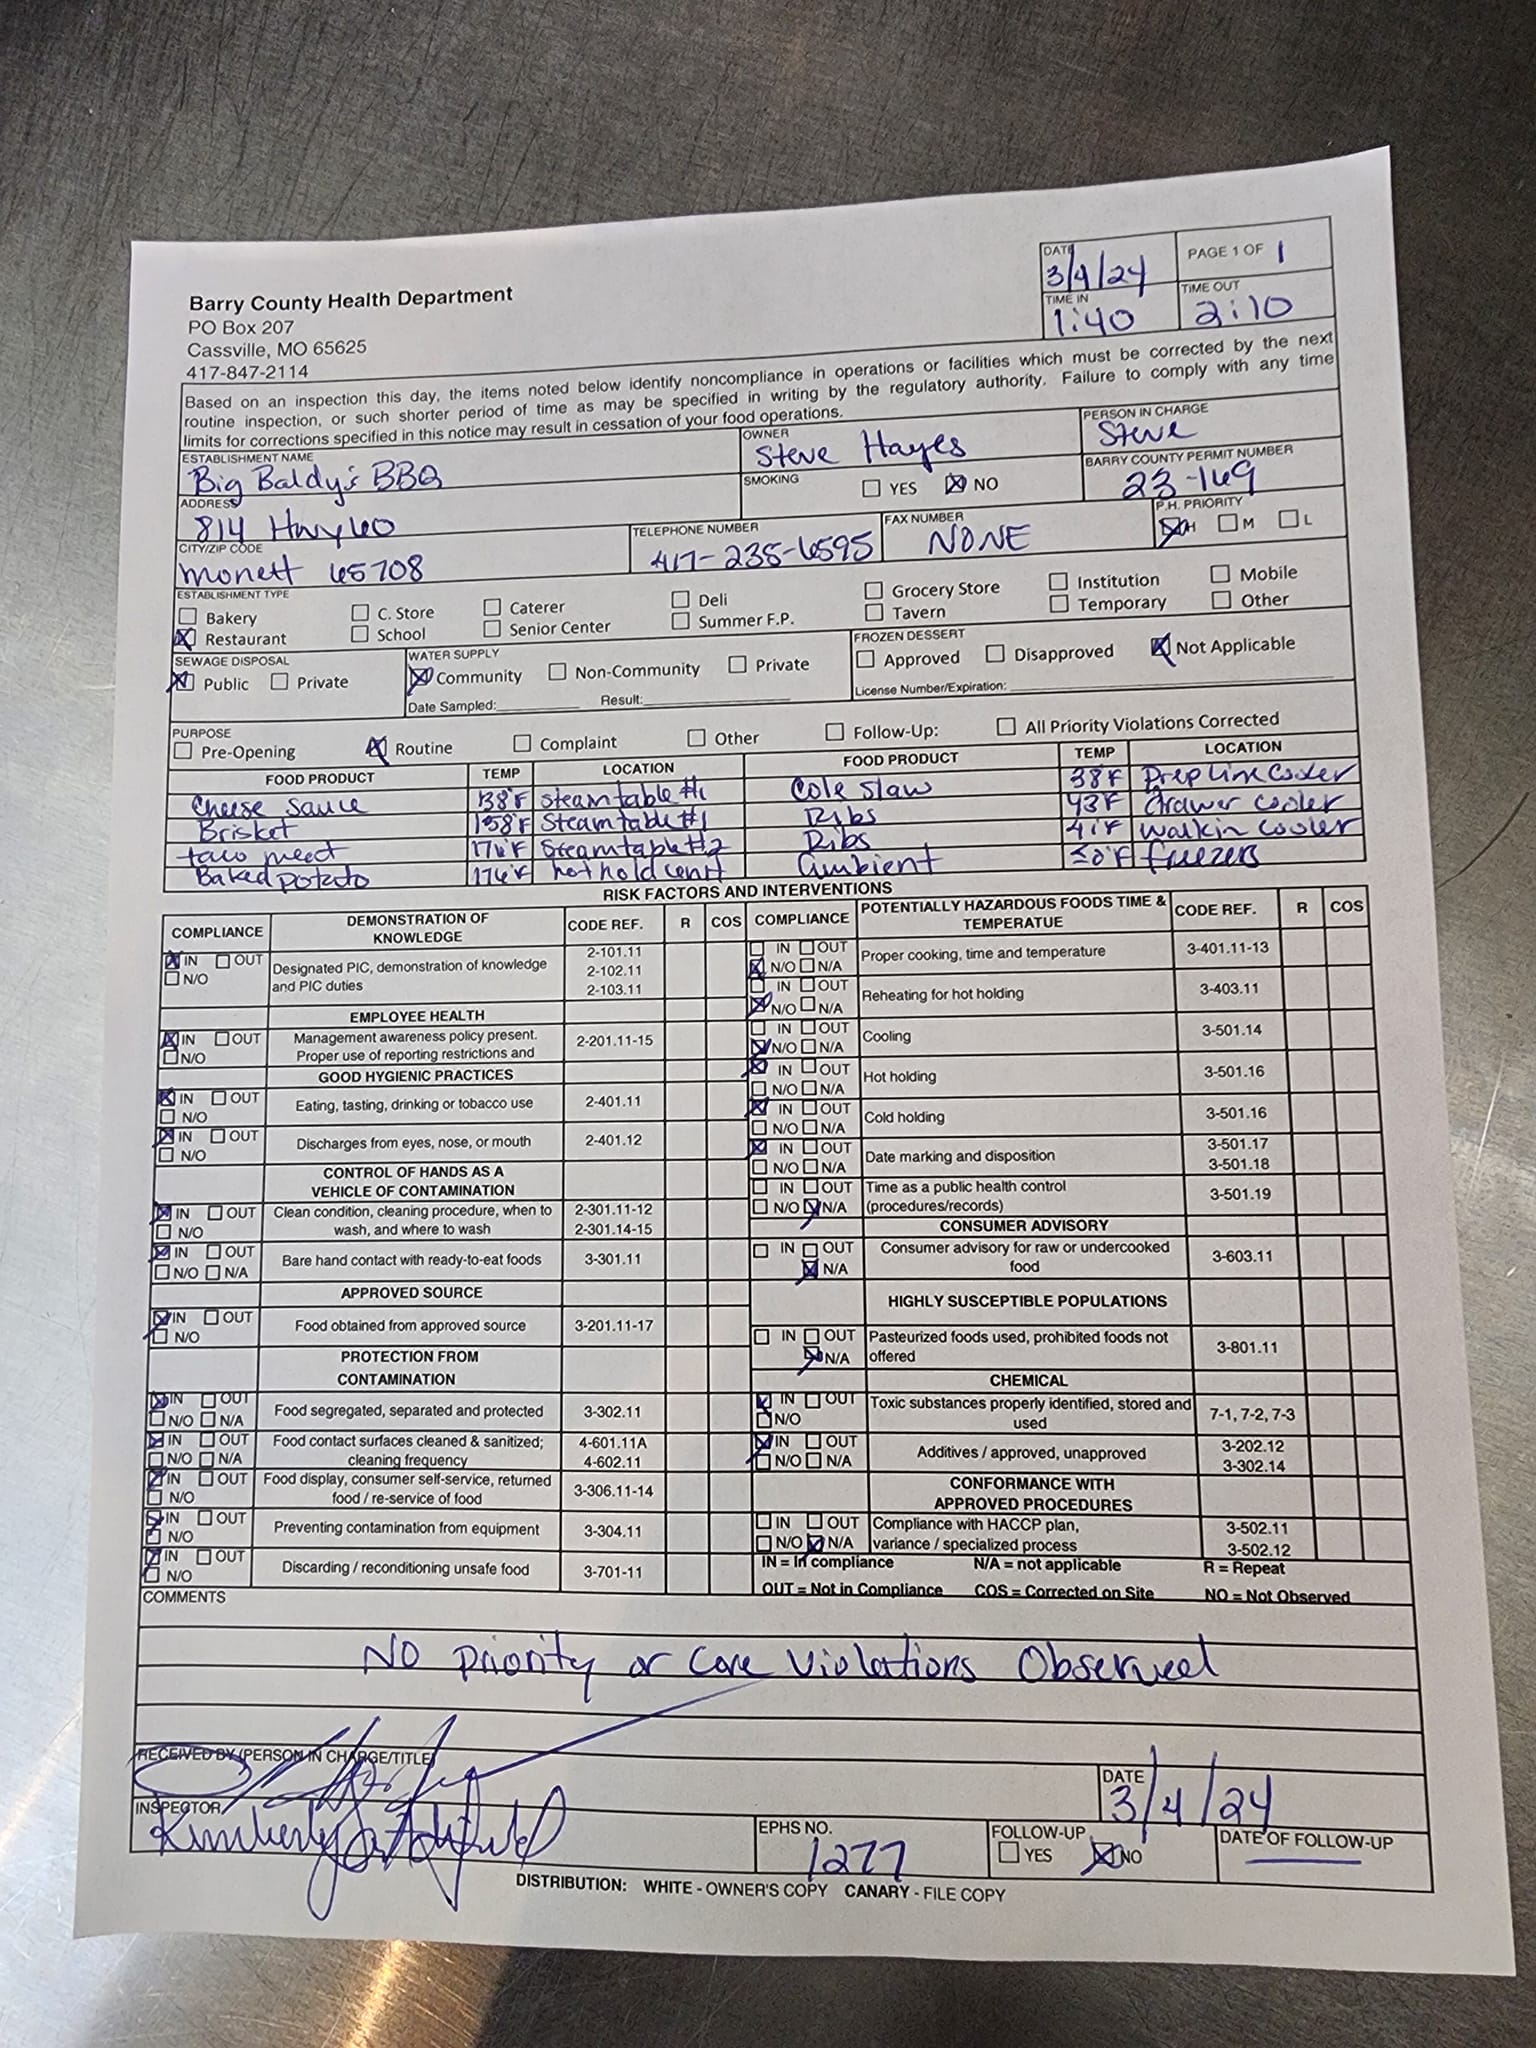 DATE
3/4/24
PAGE 1 OF 1
TIME IN
1:40
TIME OUT
2:10
Barry County Health Department
PO Box 207
Cassville, MO 65625
417-847-2114
Based on an inspection this day, the items noted below identify noncompliance in operations or facilities which must be corrected by the next
routine inspection, or such shorter period of time as may be specified in writing by the regulatory authority. Failure to comply with any time
limits for corrections specified in this notice may result in cessation of your food operations.
ESTABLISHMENT NAME
Big Baldy's BBQ
OWNER
Steve Hayes
PERSON IN CHARGE
Steve
ADDRESS
814 Hwy 60
SMOKING YES NO
BARRY COUNTY PERMIT NUMBER
23-169
CITY/ZIP CODE
Monett 65708
TELEPHONE NUMBER
417-235-6595
FAX NUMBER
NONE
P.H. PRIORITY
H M L
ESTABLISHMENT TYPE
Bakery C. Store Caterer Deli Grocery Store Institution Mobile
Restaurant School Senior Center Summer F.P. Tavern Temporary Other
SEWAGE DISPOSAL
Public Private
WATER SUPPLY
Community Non-Community Private
Date Sampled: Result:
FROZEN DESSERT
Approved Disapproved Not Applicable
License Number/Expiration:
PURPOSE
Pre-Opening Routine Complaint Other Follow-Up: All Priority Violations Corrected
FOOD PRODUCT TEMP LOCATION FOOD PRODUCT TEMP LOCATION
Cheese Sauce 138°F Steam table #1 Cole Slaw 38°F Prep line Cooler
Brisket 158°F Steam table #1 Ribs 43°F Drawer cooler
taco meat Steam table #2 Ribs 41°F Walkin cooler
Baked potato 174°F hot hold unit Ambient ≤0°F freezers
RISK FACTORS AND INTERVENTIONS
COMPLIANCE DEMONSTRATION OF KNOWLEDGE CODE REF. R COS
IN OUT N/O Designated PIC, demonstration of knowledge and PIC duties 2-101.11 2-102.11 2-103.11
EMPLOYEE HEALTH
IN OUT N/O Management awareness policy present. Proper use of reporting restrictions and 2-201.11-15
GOOD HYGIENIC PRACTICES
IN OUT N/O Eating, tasting, drinking or tobacco use 2-401.11
IN OUT N/O Discharges from eyes, nose, or mouth 2-401.12
CONTROL OF HANDS AS A VEHICLE OF CONTAMINATION
IN OUT N/O Clean condition, cleaning procedure, when to wash, and where to wash 2-301.11-12 2-301.14-15
IN OUT N/O N/A Bare hand contact with ready-to-eat foods 3-301.11
APPROVED SOURCE
IN OUT N/O Food obtained from approved source 3-201.11-17
PROTECTION FROM CONTAMINATION
IN OUT N/O N/A Food segregated, separated and protected 3-302.11
IN OUT N/O N/A Food contact surfaces cleaned & sanitized; cleaning frequency 4-601.11A 4-602.11
IN OUT N/O Food display, consumer self-service, returned food / re-service of food 3-306.11-14
IN OUT N/O Preventing contamination from equipment 3-304.11
IN OUT N/O Discarding / reconditioning unsafe food 3-701-11
COMPLIANCE POTENTIALLY HAZARDOUS FOODS TIME & TEMPERATUE CODE REF. R COS
IN OUT N/O N/A Proper cooking, time and temperature 3-401.11-13
IN OUT N/O N/A Reheating for hot holding 3-403.11
IN OUT N/O N/A Cooling 3-501.14
IN OUT N/O N/A Hot holding 3-501.16
IN OUT N/O N/A Cold holding 3-501.16
IN OUT N/O N/A Date marking and disposition 3-501.17 3-501.18
IN OUT N/O N/A Time as a public health control (procedures/records) 3-501.19
CONSUMER ADVISORY
IN OUT N/A Consumer advisory for raw or undercooked food 3-603.11
HIGHLY SUSCEPTIBLE POPULATIONS
IN OUT N/A Pasteurized foods used, prohibited foods not offered 3-801.11
CHEMICAL
IN OUT N/O Toxic substances properly identified, stored and used 7-1, 7-2, 7-3
IN OUT N/O N/A Additives / approved, unapproved 3-202.12 3-302.14
CONFORMANCE WITH APPROVED PROCEDURES
IN OUT N/O N/A Compliance with HACCP plan, variance / specialized process 3-502.11 3-502.12
IN = In compliance N/A = not applicable R = Repeat
OUT = Not in Compliance COS = Corrected on Site NO = Not Observed
COMMENTS
No Priority or Core Violations Observed
RECEIVED BY (PERSON IN CHARGE/TITLE)
DATE
3/4/24
INSPECTOR
Kimberly
EPHS NO.
1277
FOLLOW-UP
YES NO
DATE OF FOLLOW-UP
DISTRIBUTION: WHITE - OWNER'S COPY CANARY - FILE COPY